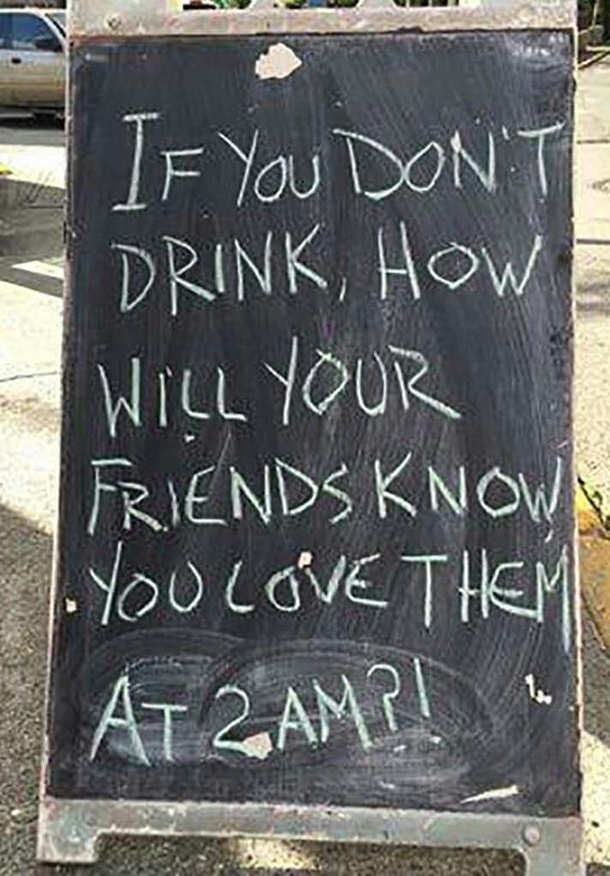 IF YOU DON'T
DRINK, HOW
WILL YOUR
FRIENDS KNOW
YOU LOVE THEM
AT 2 AM?!